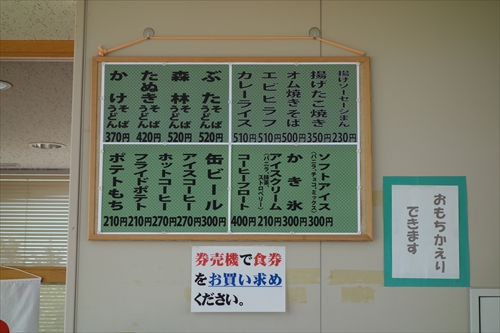 揚げソーセージまん 230円
揚げたこ焼き 350円
オム焼きそば 500円
エビピラフ 510円
カレーライス 510円
ぶた そば うどん 520円
森林 そば うどん 520円
たぬき そば うどん 420円
かけ そば うどん 370円
ソフトアイス (バニラ、チョコ、ミックス) 300円
かき氷 300円
アイスクリーム (バニラ、抹茶、ストロベリー) 210円
コーヒーフロート 400円
缶ビール 300円
アイスコーヒー 270円
ホットコーヒー 270円
フライドポテト 210円
ポテトもち 210円
おもちかえり
できます
券売機で食券
をお買い求め
ください。